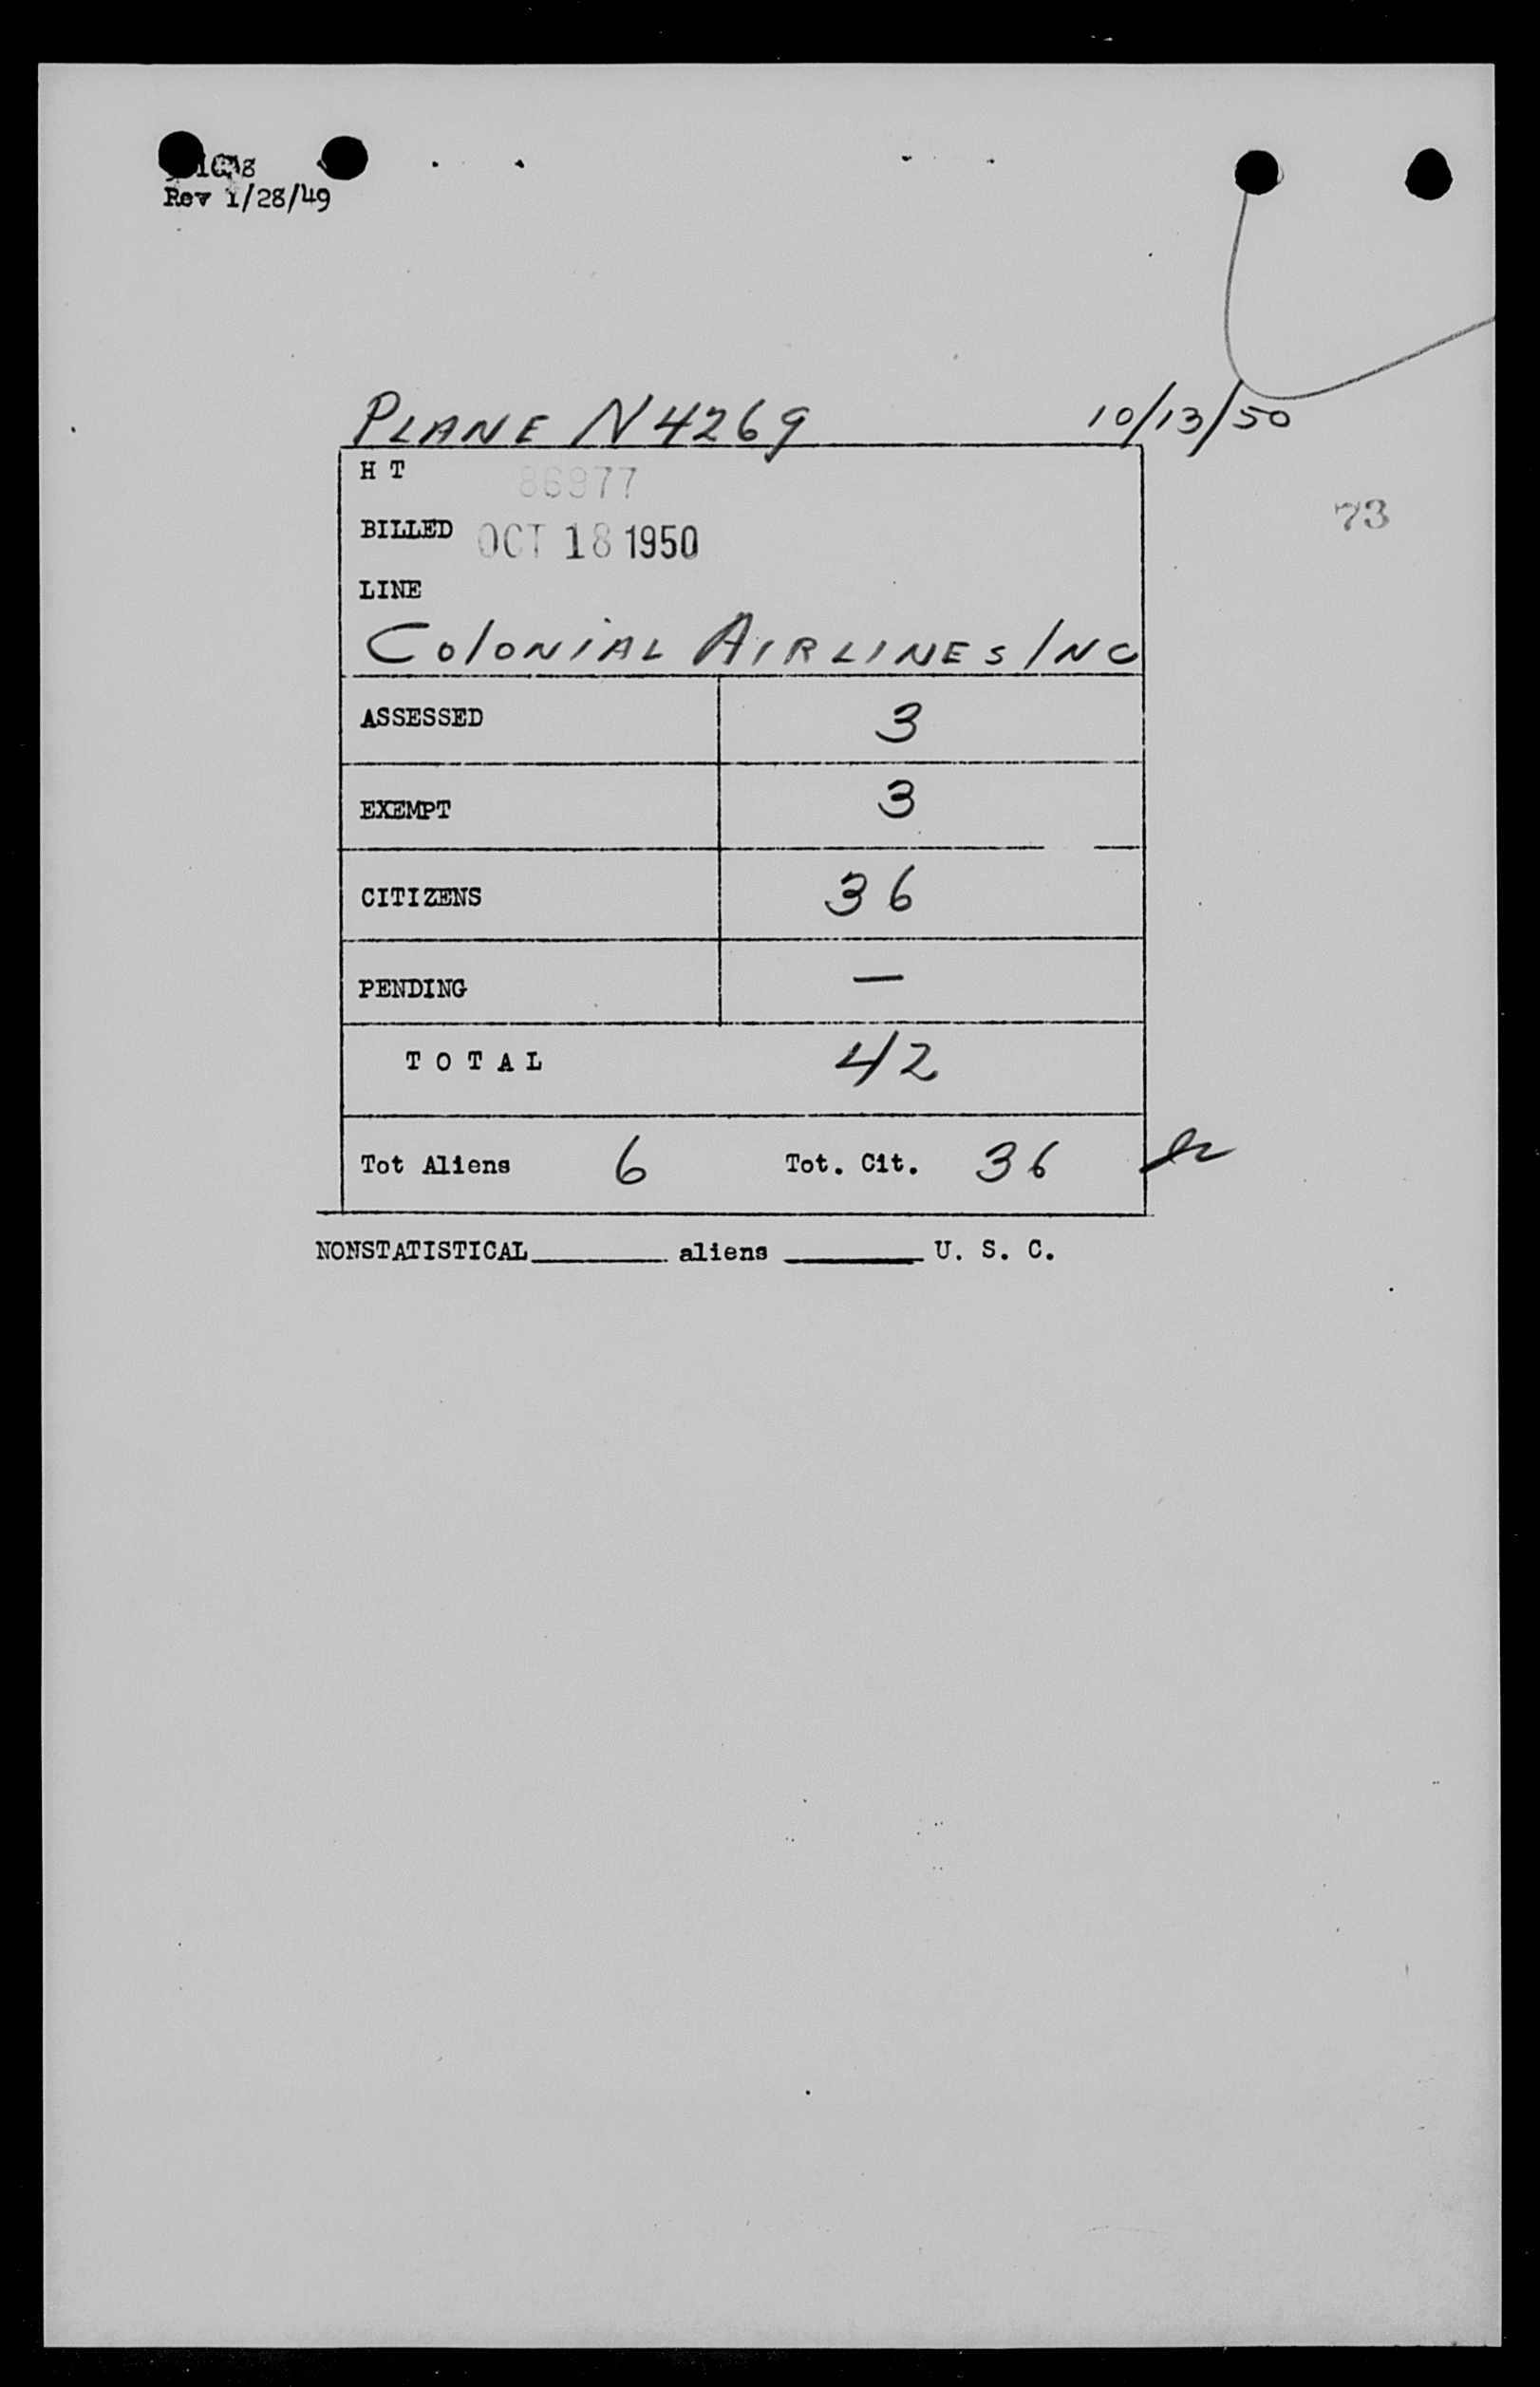 Rev 1/28/49
PLANE N4269 10/13/50
H T 86977
73
BILLED OCT 18 1950
LINE
COLONIAL AIRLINES INC
ASSESSED 3
EXEMPT 3
CITIZENS 36
PENDING —
T O T A L 42
Tot Aliens 6 Tot. Cit. 36
NONSTATISTICAL________ aliens ________ U. S. C.